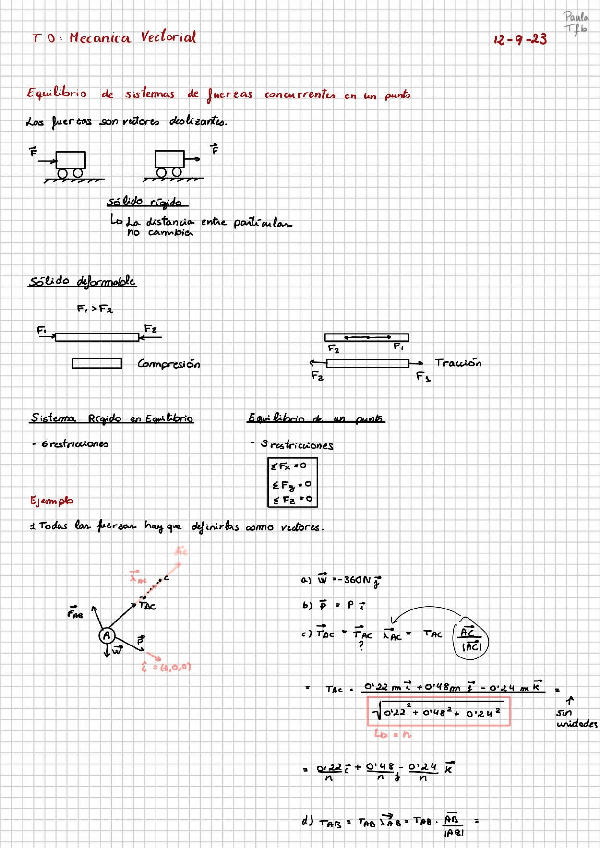 Paula
T O: Mecanica Vectorial
12-9-23
Equilibrio de sistemas de fuerzas concurrentes en un punto
Las fuerzas son vectores deslizantes.
F⃗
F⃗
sólido rígido
Lo La distancia entre particular
no cambia
Sólido deformable
F₁ > F₂
F₁
F₂
Compresión
F₂
F₁
F₂
F₁
Tracción
Sistema Rígido en Equilibrio
- 6 restricciones
Equilibrio de un punto
- 3 restricciones
ΣFx = 0
ΣFy = 0
ΣFz = 0
Ejemplo
1 Todas las fuerzas hay que definirlas como vectores.
AC⃗
λ⃗AC
C
T⃗AC
F⃗AB
A
P⃗
W⃗
i⃗ = (1,0,0)
a) W⃗ = -360N j⃗
b) P⃗ = P i⃗
c) T⃗AC = T⃗AC λ⃗AC = TAC AC⃗/|AC⃗|
?
= TAC = 0'22 m i⃗ + 0'48m j⃗ - 0'24 m k⃗ / √0'22² + 0'48² + 0'24² =
↑
sin
unidades
Lo = n
= 0'22/n i⃗ + 0'48/n j - 0'24/n k⃗
d) TAB = TAB λ⃗AB = TAB · AB⃗/|AB| =